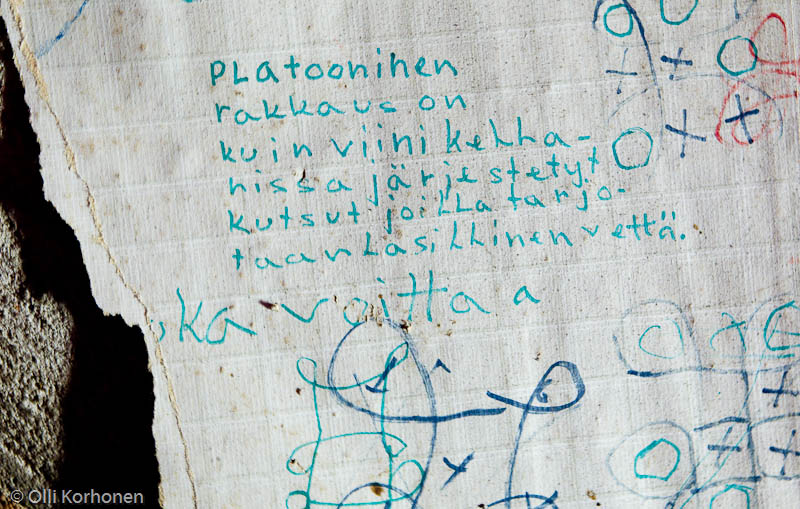 PLatooninen
rakkaus on
kuin viinikella-
rissa järjestetyt
kutsut joilla tarjo-
taan lasillinen vettä.
ka voittaa
© Olli Korhonen